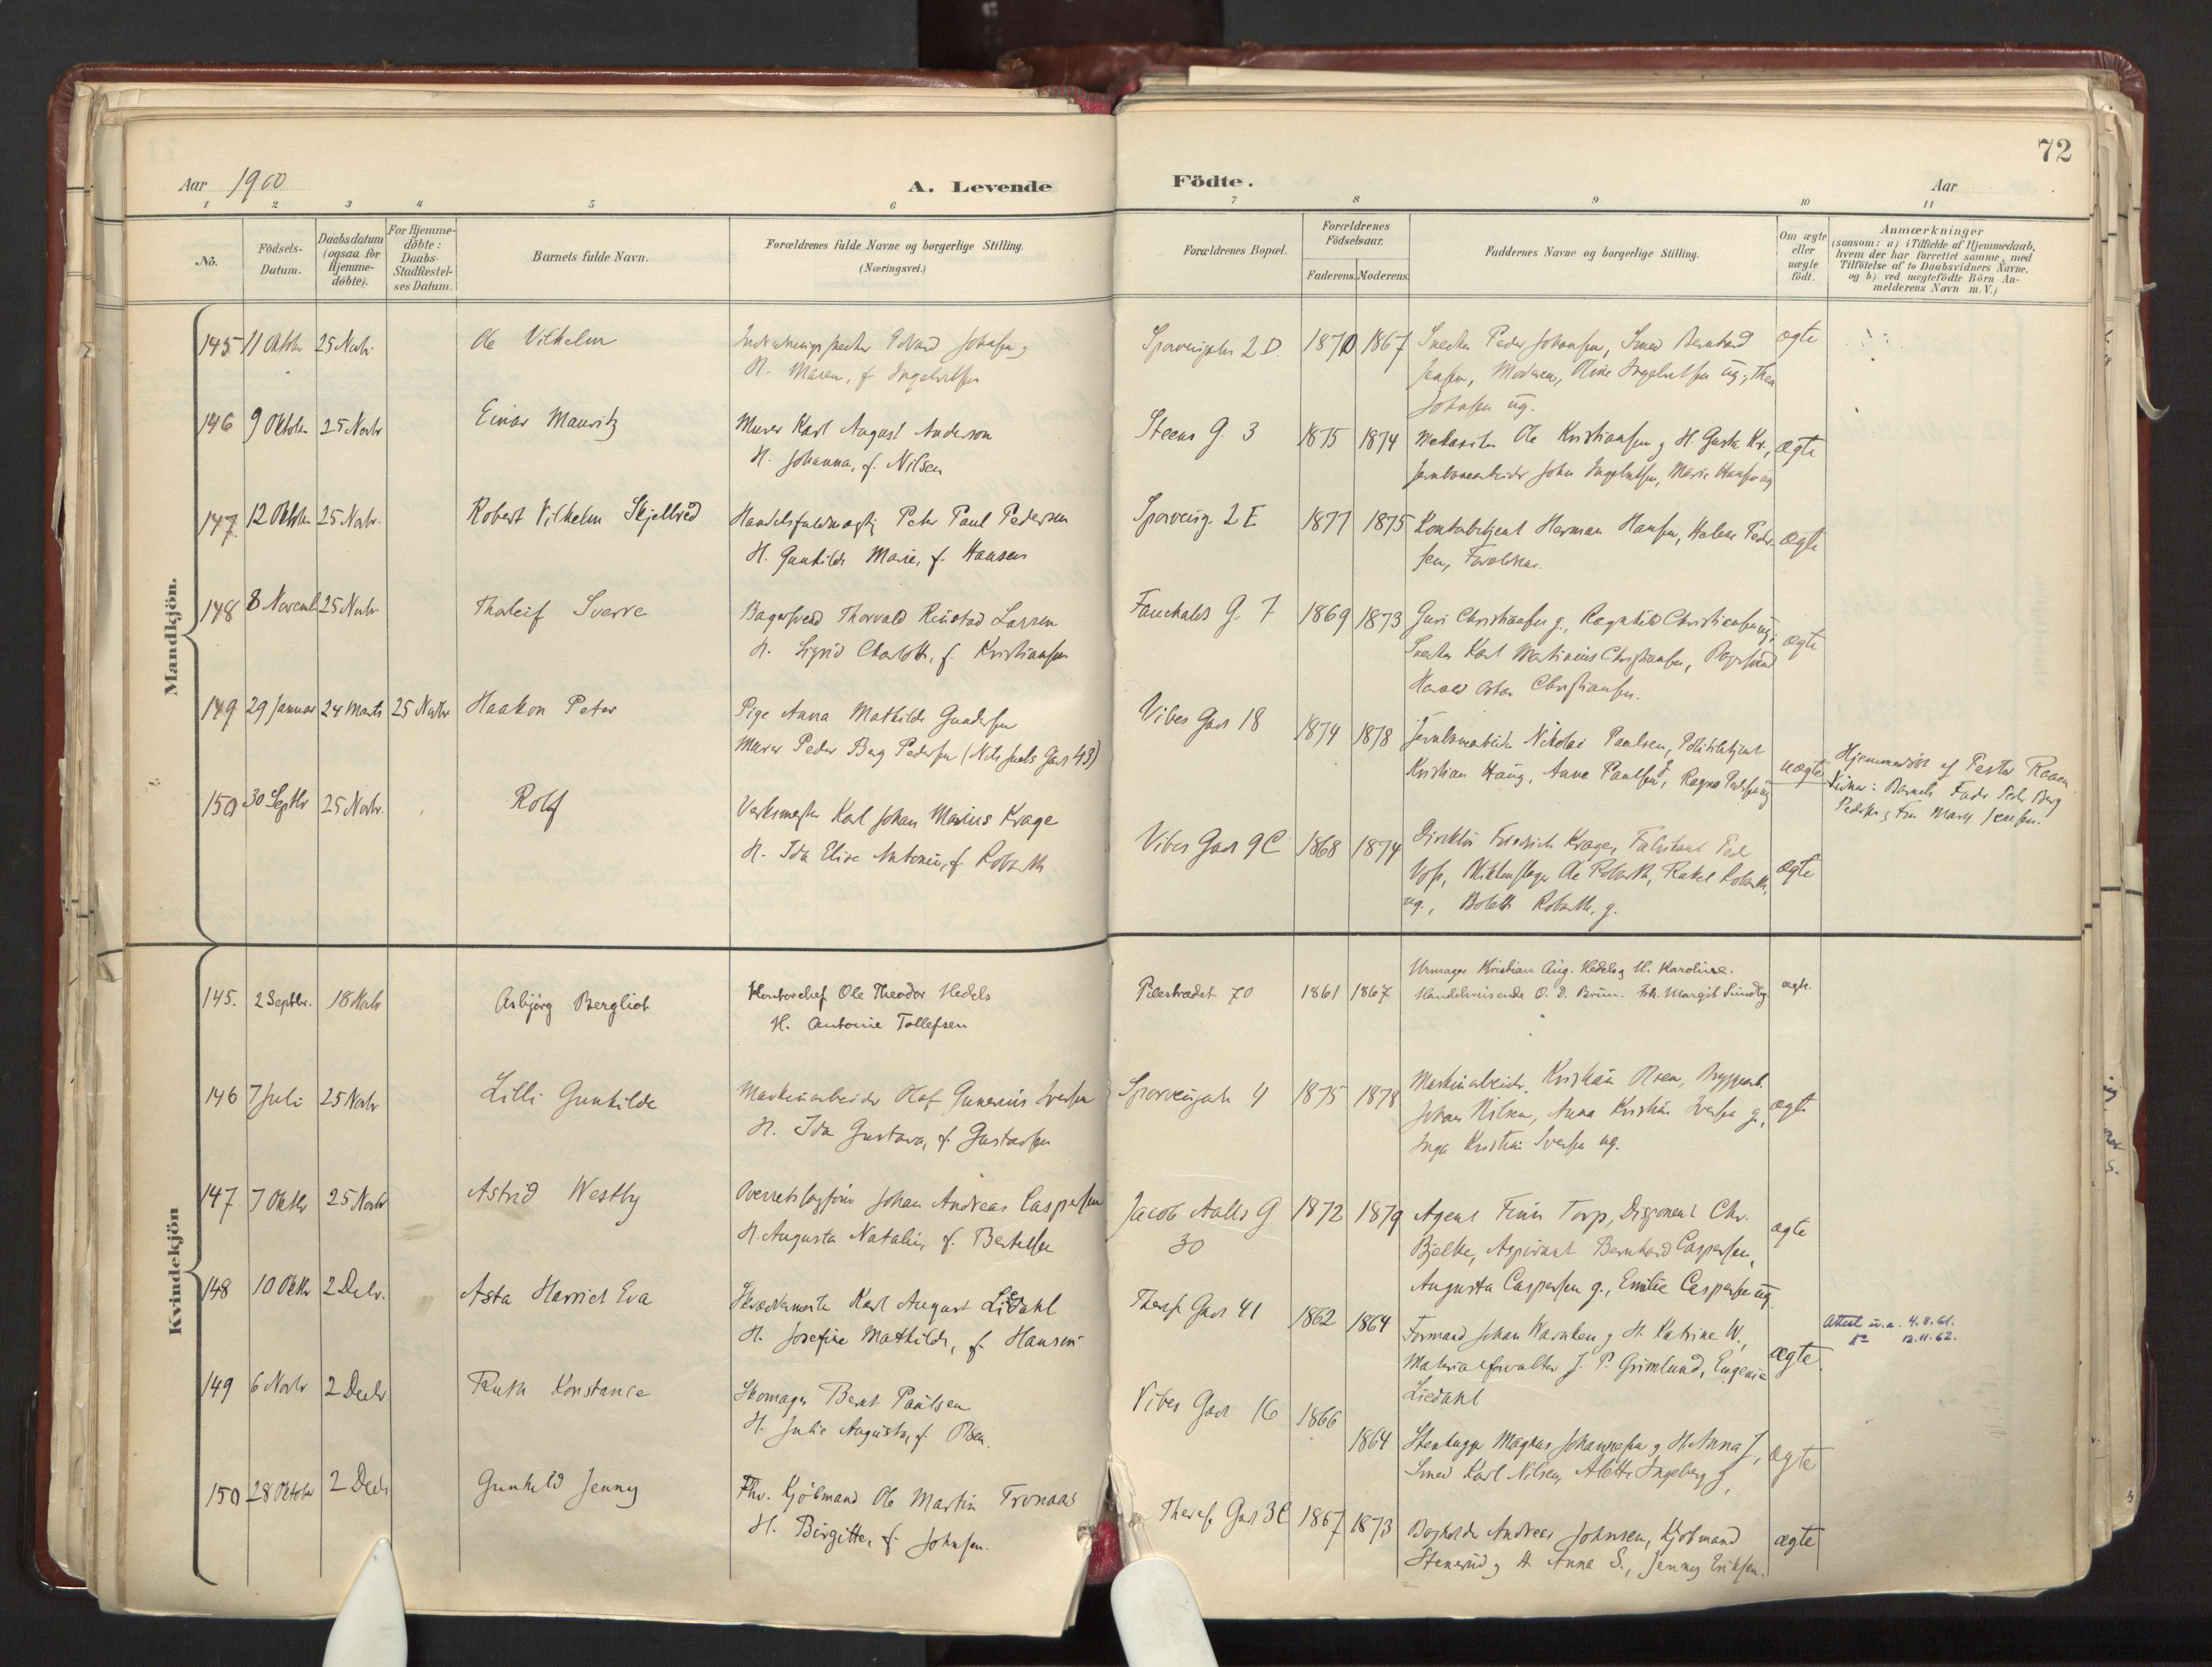 72
Aar 1900
A. Levende
Födte.
Aar
1 2 3 4 5 6 7 8 9 10 11
No.
Födsels-
Datum.
Daabsdatum
(ogsaa for
Hjemme-
döbte).
For Hjemme-
döbte:
Daabs-
Stadfæstel-
ses Datum.
Barnets fulde Navn.
Forældrenes fulde Navne og borgerlige Stilling.
(Næringsvei.)
Forældrenes Bopæl.
Forældrenes
Födselsaar.
Faderens. Moderens.
Faddernes Navne og borgerlige Stilling.
Om ægte
eller
uægte
födt.
Anmærkninger
(saasom: a) i Tilfælde af Hjemmedaab,
hvem der har forrettet samme, med
Tilföielse af to Daabsvidners Navne,
og b) ved uægtefödte Börn An-
melderens Navn m. V.)
Mandkjön.
145 11 Oktbr 25 Novbr. Ole Vilhelm
Edvard Johnsen g
H. Maren, f. Ingebretsen
Sporveisgaden 2 D. 1870 1867
Snedker Peder Johansen, Smed Bernhard
Jensen, Moderen, Oline Ingebretsen ug., Thea
Johnsen ug.
ægte
146 9 Oktober 25 Novbr Einar Mauritz
Murer Karl August Anderson
H. Johanna, f. Nilsen
Steens G. 3 1875 1874
Ole Kristiansen g H. Gusta Kr.,
John Ingebretsen, Marie Hansen ug
ægte
147 12 Oktober 25 Novbr. Robert Vilhelm Skjellred
Handelsfuldmægtig Peter Paul Pedersen
H. Gunhilde Marie, f. Hansen
Sporveisg. 2 E 1877 1875
Kontorbetjent Herman Hansen, Helene Peder-
sen, Forældrene.
ægte
148 8 Novemb 25 Novbr Tholeif Sverre
Bagersvend Thorvald Rustad Larsen
H. Sigrid Charlotte, f. Kristiansen
Fauchalds G. 7 1869 1873
Guri Christiansen g., Ragnhild Christiansen ug.,
Snedker Karl Martinius Christiansen, Bagersvend
Oskar Christiansen.
ægte
149 29 Januar 24 Marts 25 Novbr Haakon Peter
Pige Anna Mathilde Gundersen
Murer Peder Berg Pedersen (Nils Juels Gade 43)
Vibes Gade 18 1874 1878
Nikolai Paulsen, Politibetjent
Kristian Haug, Anna Paulsen g, Ragna Pedersen ug
uægte
Hjemmedöbt af Pastor
Vidner: Barnets Fader Peder Berg
Pedersen g Fru Jensen.
150 30 Septbr 25 Novbr. Rolf
Verksmester Karl Johan Marius Krage
H. Ida Elise Antonie, f. Robarth
Vibes Gade 9 C 1868 1874
Direktör Friedrich Krage, Fabrikant
Voss, Ole Robarth, Rakel Robarth,
ug., Bolette Robarth, g.
ægte
Kvindekjön
145. 2 Septbr. 18 Novbr Asbjörg Bergliot
Kontorchef Ole Theodor Hedels
H. Antonie Tollefsen
Pilestrædet 70 1861 1867
Urmager Kristian Aug. Hedels g H. Karoline.
Handelsreisende O. D. Brun. Frk. Margit Sundby.
ægte.
146 7 Juli 25 Novbr Lilli Gunhilde
Maskinarbeider Olaf Gunerius Iversen
H. Ida Gustava, f. Gustavsen
Sporveisgade 4 1875 1878
Maskinarbeider Kristian Olsen, Bryggearb.
Johan Nilsen, Anna Kristine Iversen g.,
Inga Kristine Iversen ug.
ægte
147 7 Oktbr 25 Novbr Astrid Westby
Overretssagförer Johan Andreas Caspersen
H. Augusta Natalie, f. Bertelsen
Jacob Aalls G. 30 1872 1879
Agent Finn Torp, Disponent Chr.
Bjelke, Aspirant Bernhard Caspersen,
Augusta Caspersen g., Emilie Caspersen ug.
ægte
148 10 Oktbr 2 Decbr. Asta Harriet Eva
Skræddermester Karl August Liedahl
H. Josefine Mathilde, f. Hansen
Theres. Gade 41 1862 1864
Formand Johan Warnken g H. Katrine W.,
Materialforvalter J. P. Grimlund, Eugenie
Liedahl
ægte.
Attest u.a. 4.8.61.
do 12.11.62.
149 6 Novbr 2 Decbr Ruth Konstance
Skomager Bernt Paulsen
H. Julie Augusta, f. Olsen.
Vibes Gade 16 1866 1864
Stenhugger Magnus Johannesen g H. Anna J.,
Smed Karl Nilsen, Alette Ingeberg g.
ægte
150 28 Oktober 2 Decbr Gunhild Jenny
Fhv. Kjöbmand Ole Martin Tronaas
H. Birgitte, f. Johnsen.
Theres. Gade 3 C 1867 1873
Bogholder Andreas Johnsen, Kjöbmand
Stenerud g H. Anna S., Jenny Eriksen.
ægte